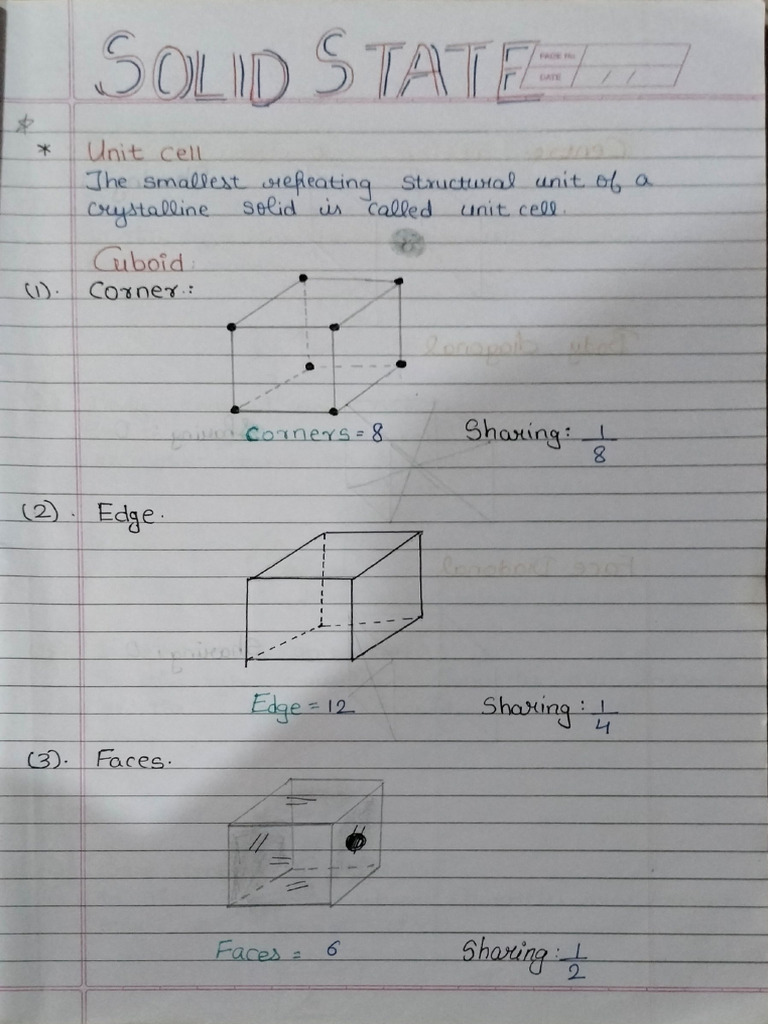 SOLID STATE
PAGE No.
DATE / /
* Unit cell
The smallest repeating structural unit of a
crystalline solid is called unit cell.
Cuboid:
(1). Corner:
Corners = 8 Sharing: 1/8
(2). Edge.
Edge = 12 Sharing: 1/4
(3). Faces.
Faces = 6 Sharing: 1/2